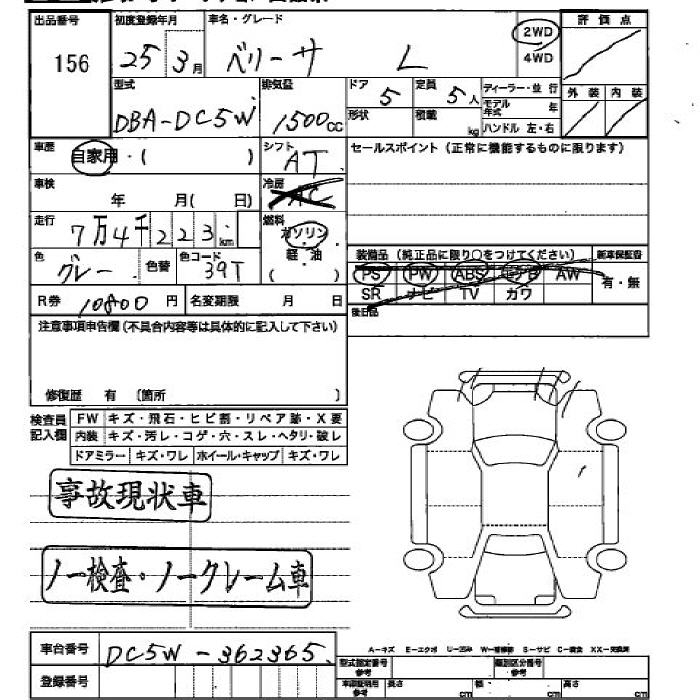 出品番号 初度登録年月 車名・グレード 評価点
156 25 3月 ベリーサ L 2WD
4WD
型式 排気量 ドア 定員 ディーラー・並行 外装 内装
DBA-DC5W 1500cc 5 5人 モデル年式 年
形状 積載 kg ハンドル 左・右
車歴 自家用・( ) シフト AT セールスポイント(正常に機能するものに限ります)
車検 年 月( 日) 冷房 AC
走行 7万4千223km 燃料 ガソリン・軽・油 ( )
色 グレー 色替 色コード 39T
装備品(純正品に限り○をつけてください) 新車保証書
PS PW ABS エアB AW 有・無
SR ナビ TV カワ
R券 10800円 名変期限 月 日 後日品
注意事項申告欄(不具合内容等は具体的に記入して下さい)
修復歴 有 〔箇所 〕
検査員記入欄 FW キズ・飛石・ヒビ割・リペア跡・X要
内装 キズ・汚レ・コゲ・穴・スレ・ヘタリ・破レ
ドアミラー キズ・ワレ ホイール・キャップ キズ・ワレ
事故現状車
ノー検査・ノークレーム車
車台番号 DC5W-362365
A-キズ E-エクボ S-サビ
型式指定番号参考 類別区分番号参考
登録番号 長さ cm 幅 cm 高さ cm